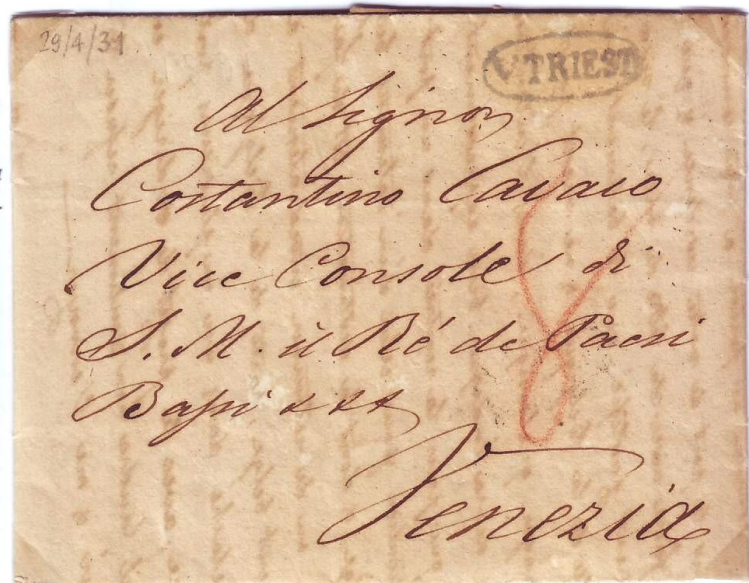 29/4/31
V. TRIEST
Al Signor
Costantino
Vice Console di
S. M. il Ré de Paesi
Bassi
8
Venezia